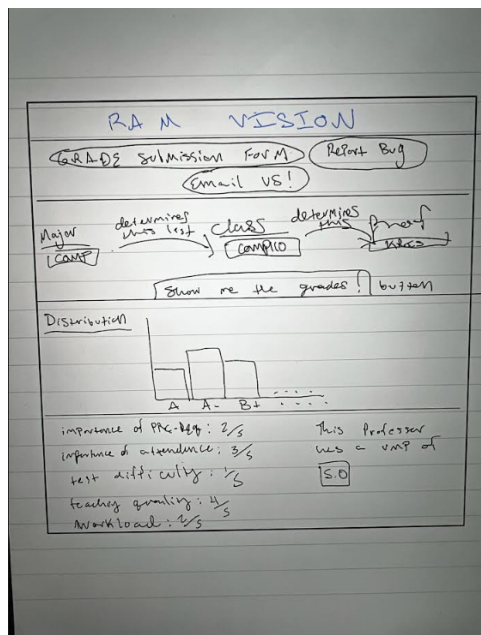 RAM VISION
GRADE Submission Form
Report Bug
Email US!
Major
determines this list
class
determines this
Prof
COMP
COMP110
Show me the grades! button
Distribution
A A- B+ ......
importance of Pre-Req: 2/5
importance of attendence: 3/5
test difficulty: 1/5
teaching quality: 4/5
workload: 2/5
This Professor
has a RMP of
5.0